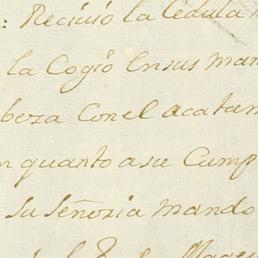 : Reciuio la Cedula
la Cogió Ensus man
beza Conel acatam
n quanto a su Cump
su señoria mando